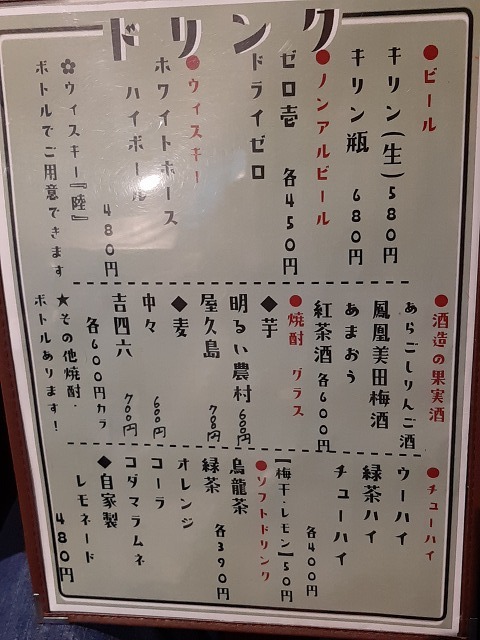 ドリンク
●ビール
キリン(生)580円
キリン瓶 680円
●ノンアルビール
ゼロ壱 各450円
ドライゼロ
●ウィスキー
ホワイトホース
ハイボール 480円
✿ウィスキー『陸』
ボトルでご用意できます
●酒造の果実酒
あらごしりんご酒
鳳凰美田梅酒
あまおう
紅茶酒 各600円
●焼酎 グラス
◆芋
明るい農村 600円
屋久島 700円
◆麦
中々 600円
吉四六 700円
各600円カラ
★その他焼酎・
ボトルあります!
●チューハイ
ウーハイ
緑茶ハイ
チューハイ
各400円
【梅干・レモン】50円
●ソフトドリンク
烏龍茶 各390円
緑茶
オレンジ
コーラ
コダマラムネ
◆自家製
レモネード
480円